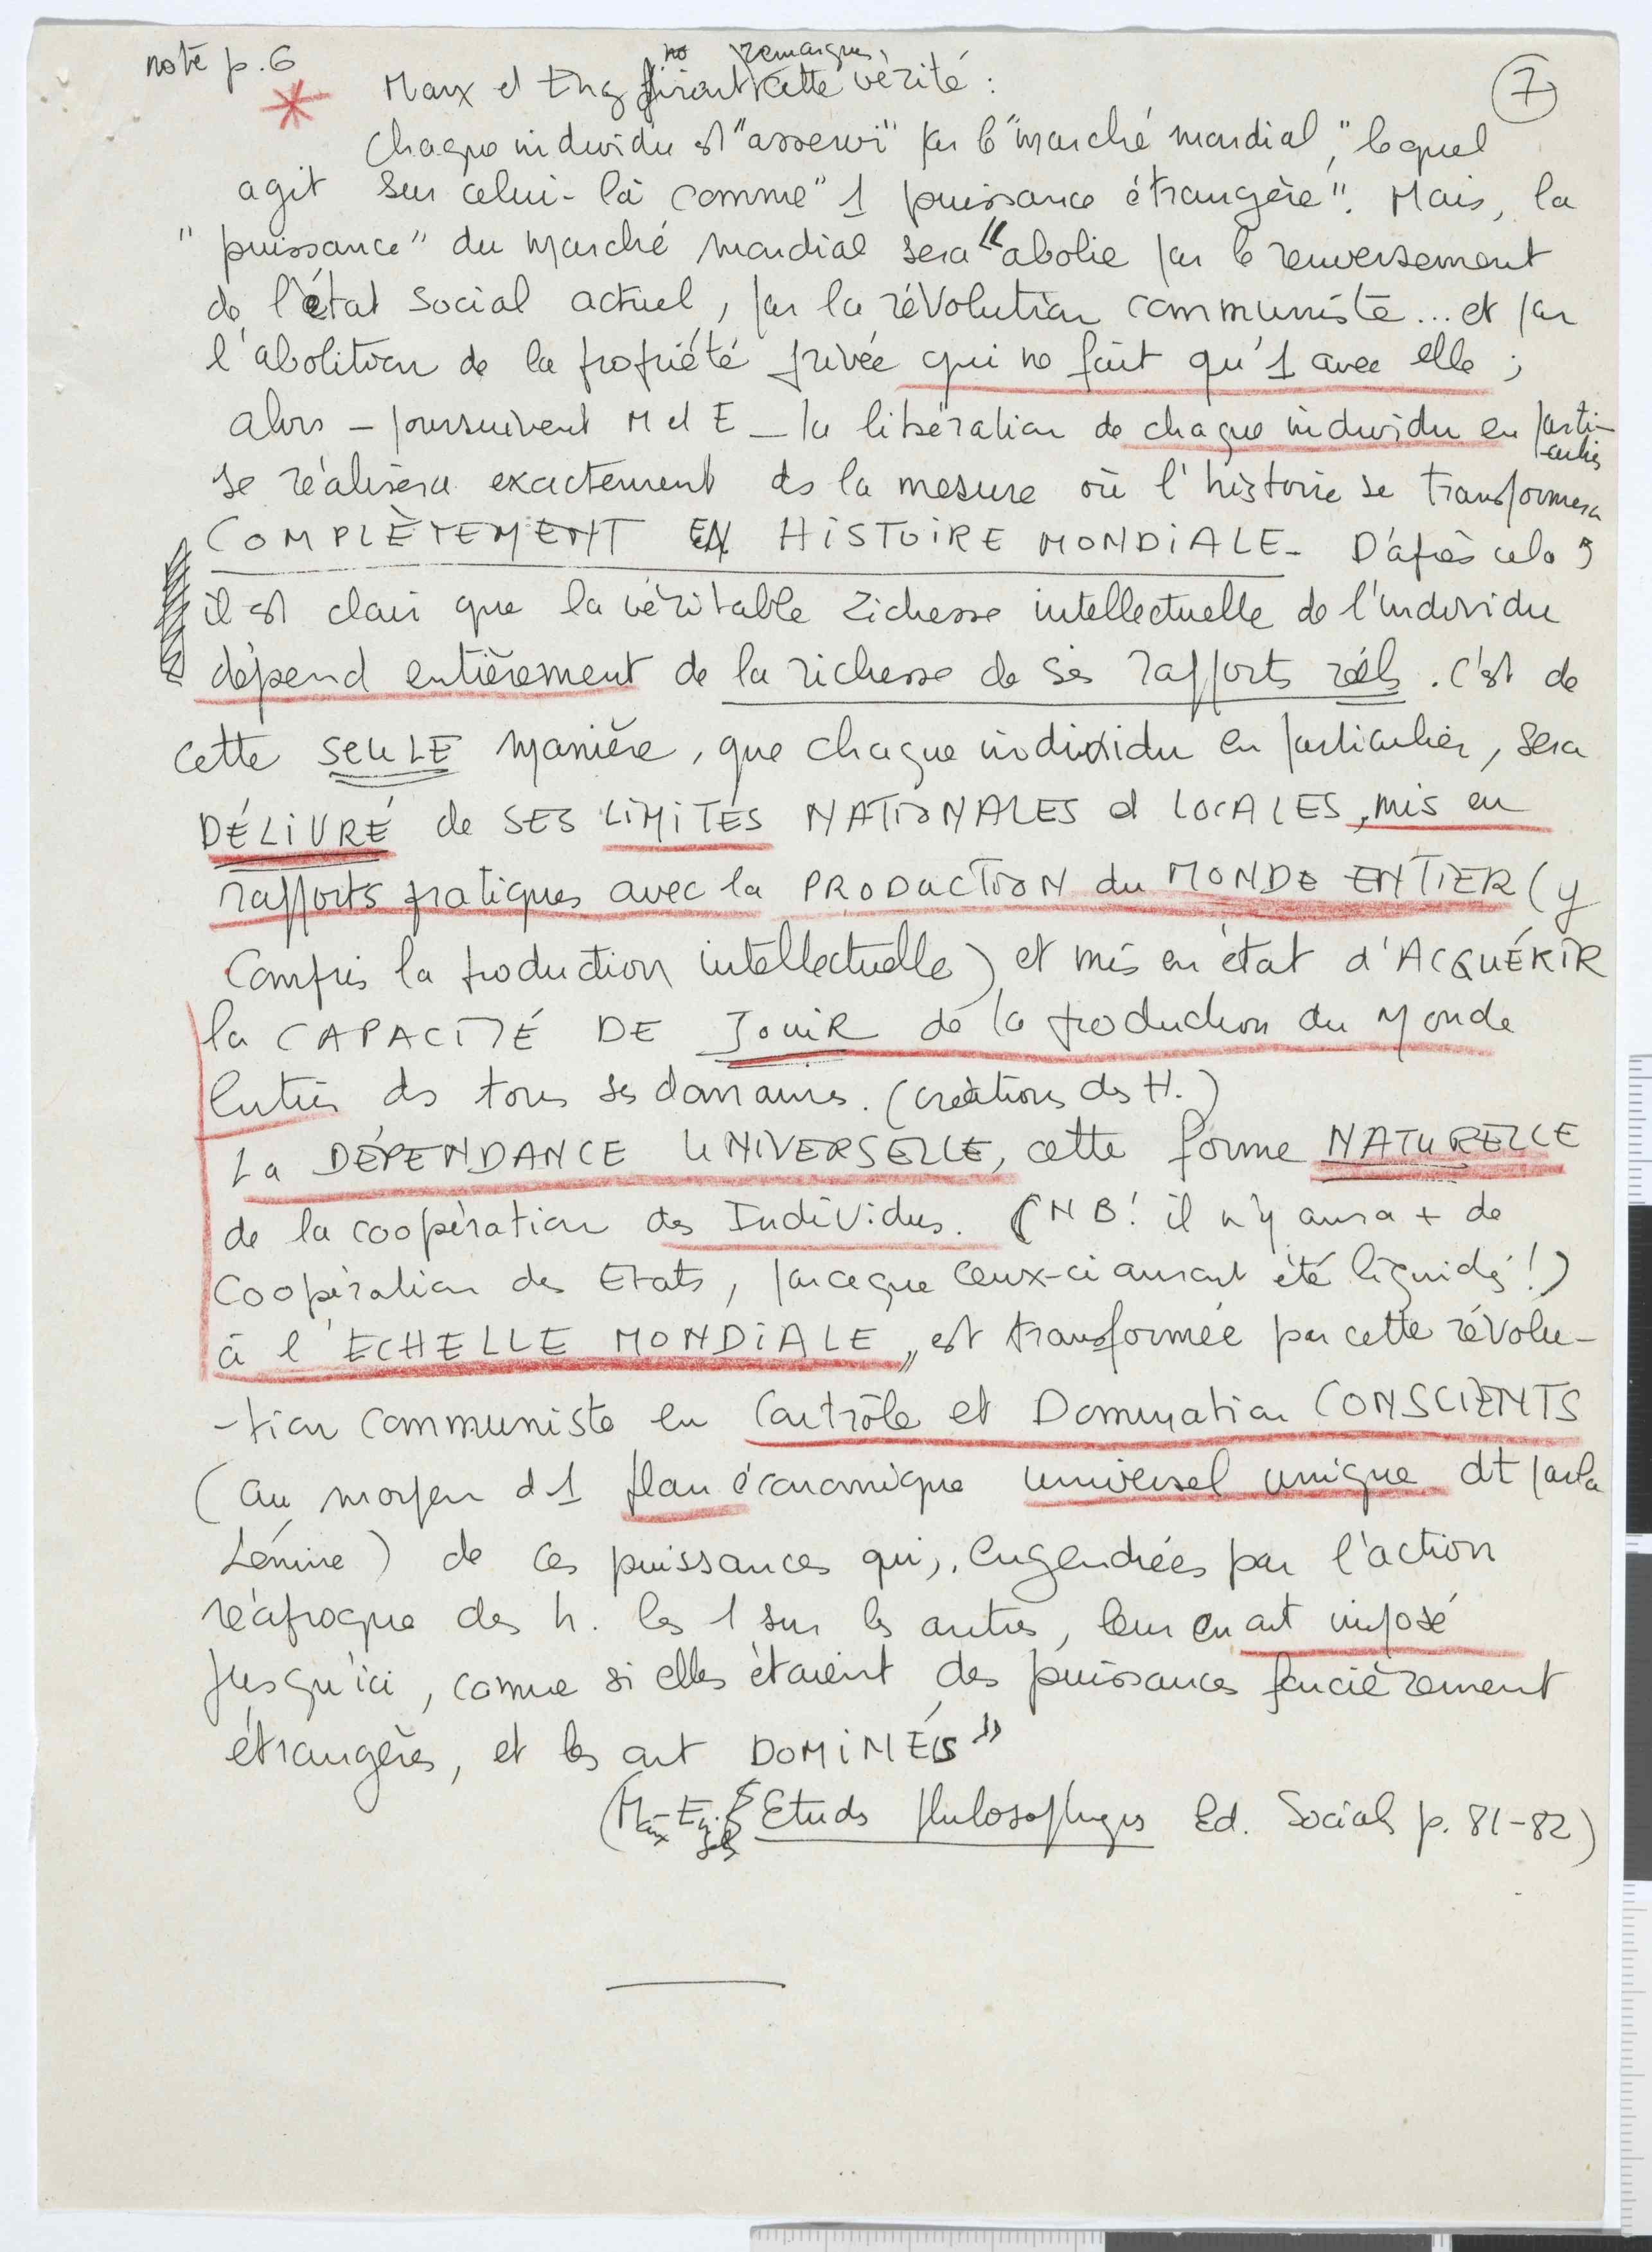 note p.6
7
no remarque
* Marx et Eng firent cette vérité :
Chaque individu est "asservi" par le "marché mondial", lequel
agit sur celui-là comme "1 puissance étrangère". Mais, la
"puissance" du marché mondial sera "abolie par le renversement
de l'état social actuel, par la révolution communiste... et par
l'abolition de la propriété privée qui ne fait qu'1 avec elle ;
alors – poursuivent M et E – la libération de chaque individu en parti-
culier
se réalisera exactement ds la mesure où l'histoire se transformera
COMPLÈTEMENT EN HISTOIRE MONDIALE – D'après cela,
il est clair que la véritable richesse intellectuelle de l'individu
dépend entièrement de la richesse de ses rapports réels. C'est de
cette SEULE manière, que chaque individu en particulier, sera
DÉLIVRÉ de SES LIMITES NATIONALES et LOCALES, mis en
rapports pratiques avec la PRODUCTION du MONDE ENTIER (y
compris la production intellectuelle) et mis en état d'ACQUÉRIR
la CAPACITÉ DE JOUIR de la production du Monde
entier ds tous ses domaines. (créations des H.)
La DÉPENDANCE UNIVERSELLE, cette forme NATURELLE
de la coopération des Individus. (NB! il n'y aura + de
Coopération des Etats, parceque ceux-ci auront été liquidés !)
à l'ECHELLE MONDIALE, est transformée par cette révolu-
-tion communiste en Contrôle et Domination CONSCIENTS
(au moyen d'1 plan économique universel unique dt parla
Lénine) de ces puissances qui, engendrées par l'action
réciproque des h. les 1 sur les autres, leur en ont imposé
jusqu'ici, comme si elles étaient des puissances foncièrement
étrangères, et les ont DOMINÉS"
(Marx-Engels Etudes philosophiques Ed. Sociales p. 81-82)